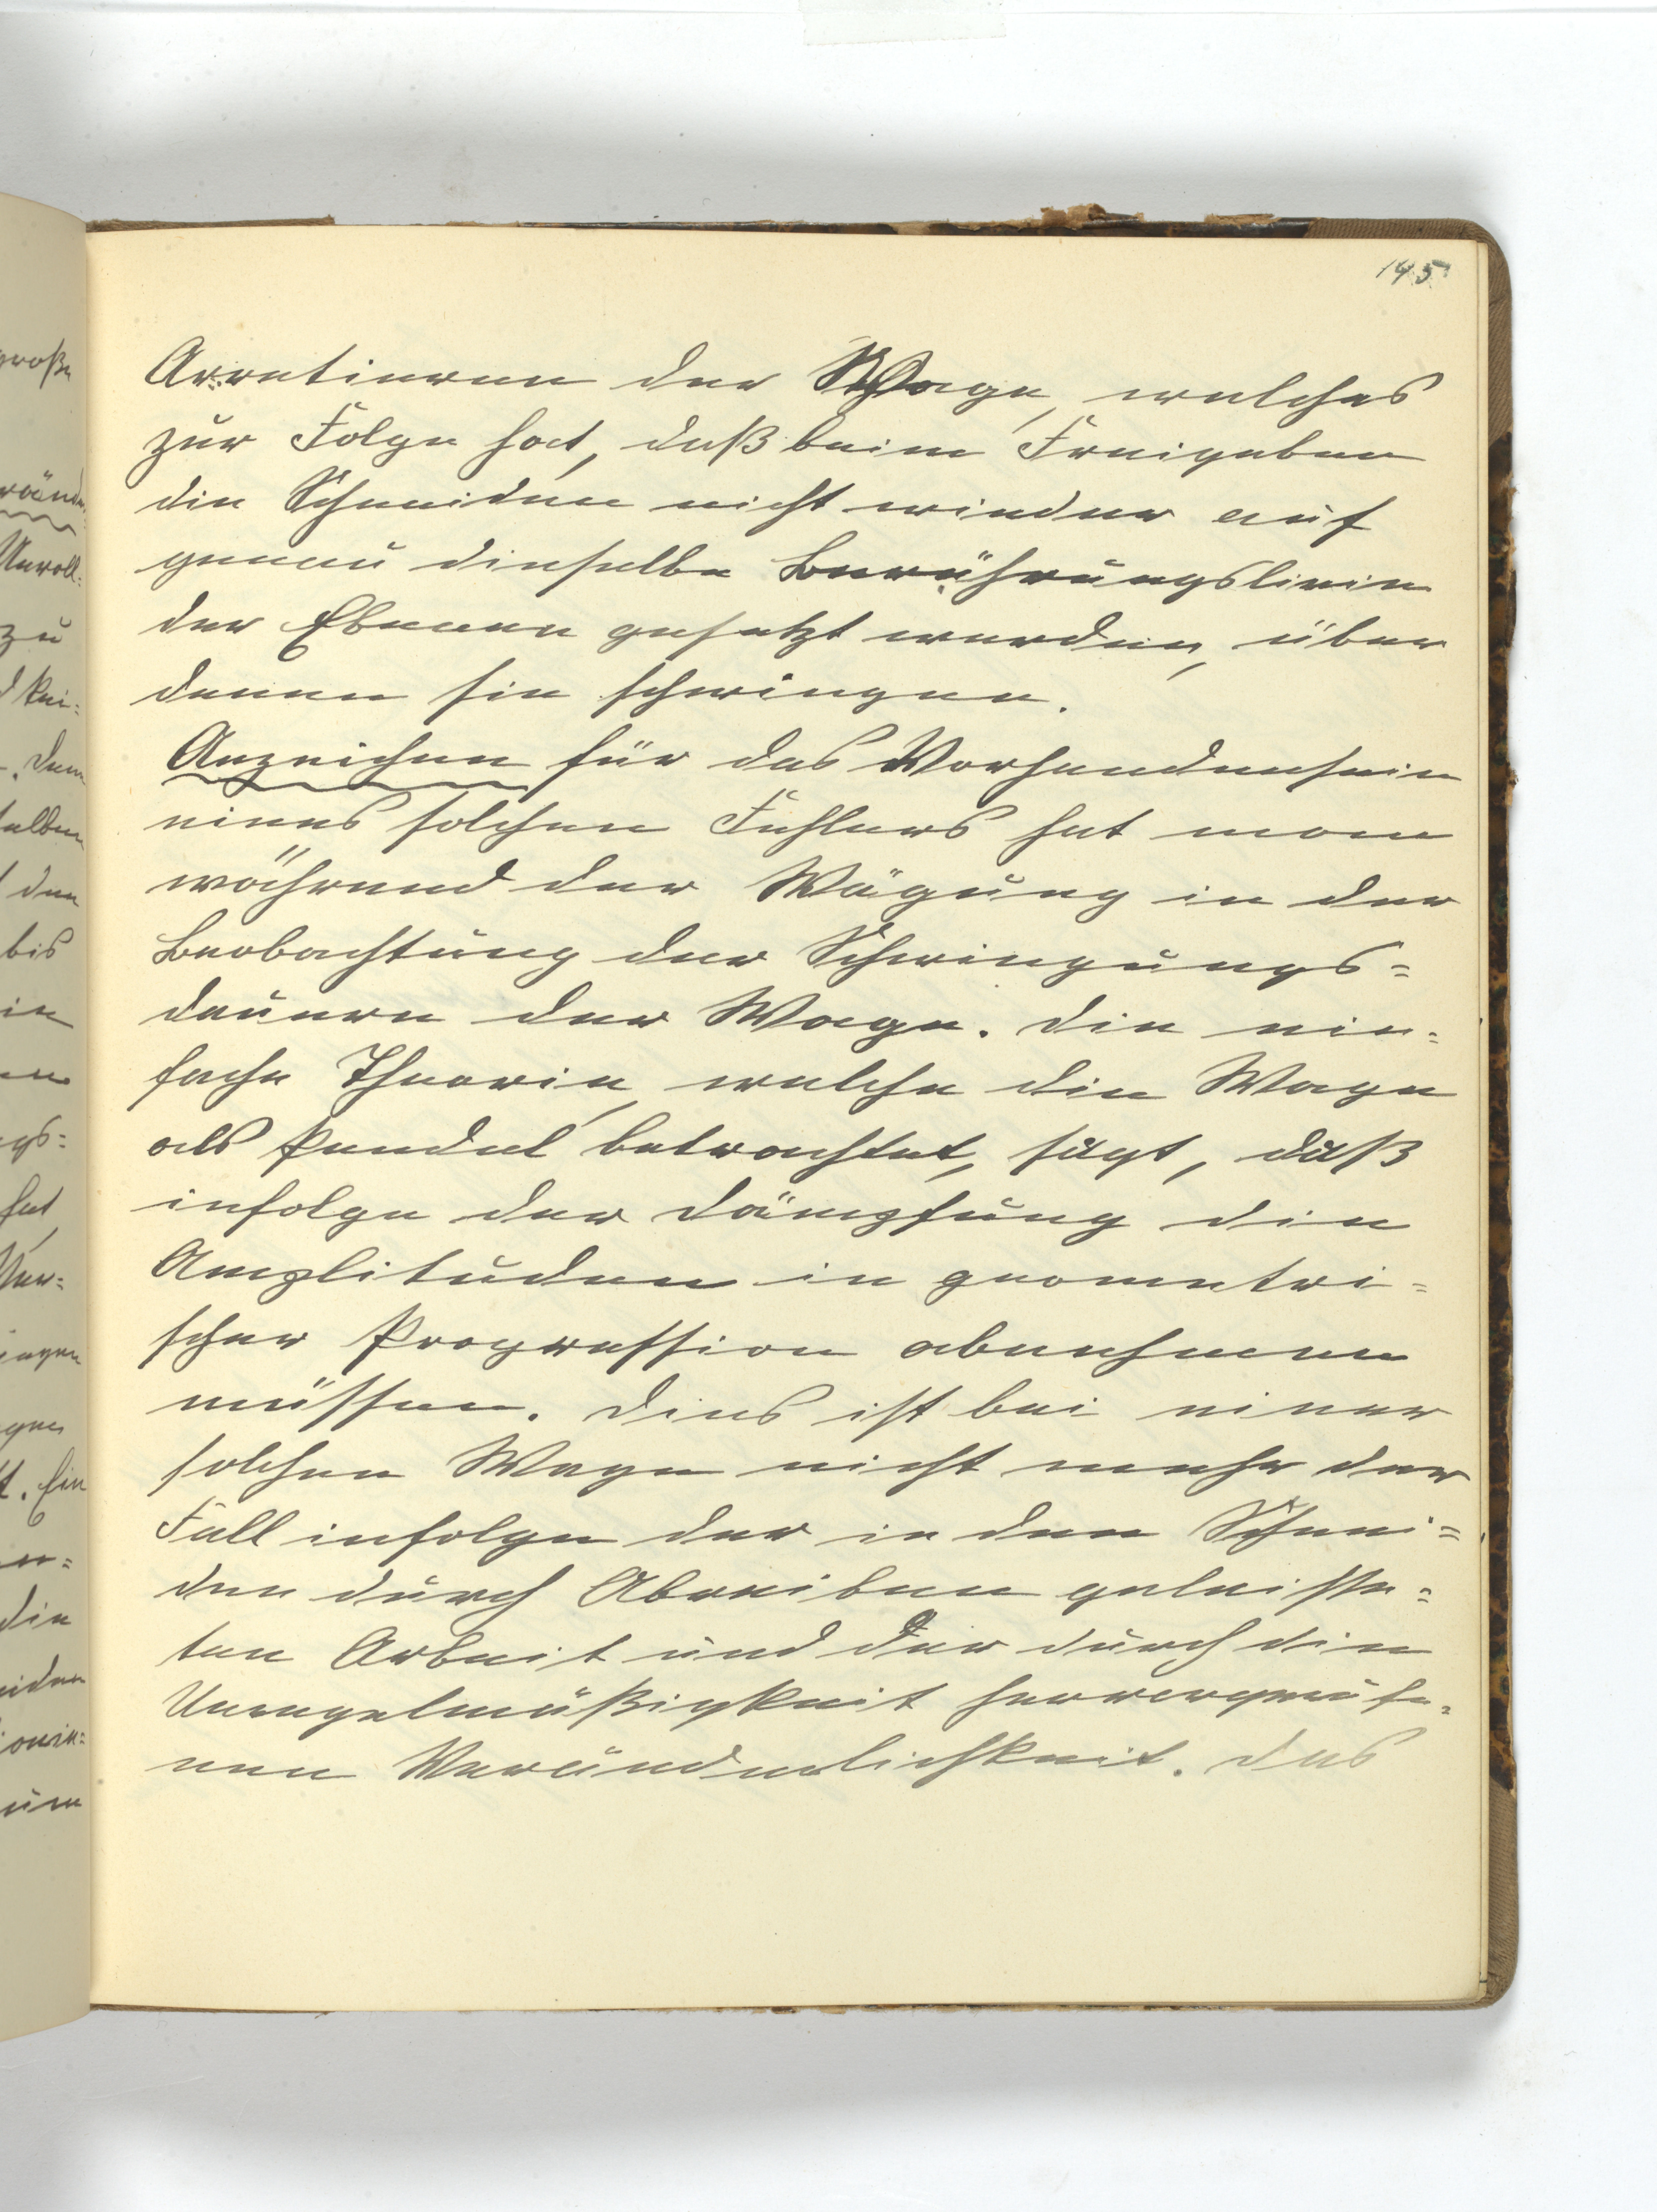 145
Arretieren der Wage, welches
zur Folge hat, daß beim Freigeben
die Schneiden nicht wieder auf
genau dieselbe Berührungslinie
der Ebenen gesetzt werden, über
denen sie schwingen.
Anzeichen für das Vorhandensein
eines solchen Fehlers hat man
während der Wägung in der
Beobachtung der Schwingungs=
dauern der Wage. Die ein=
fache Theorie, welche die Wage
als Pendel betrachtet, sagt, daß
infolge der Dämpfung die
Amplituden in geometri=
scher Progression abnehmen
müssen. Dies ist bei einer
solchen Wage nicht mehr der
Fall infolge der in den Schnei=
den durch Abreiben geleiste=
ten Arbeit und der durch die
Unregelmäßigkeit hervorgerufe=
nen Veränderlichkeit. Das
große
Unvoll=
zu
selben
den
bis
in
hat,
Ver=
t. Ein
die